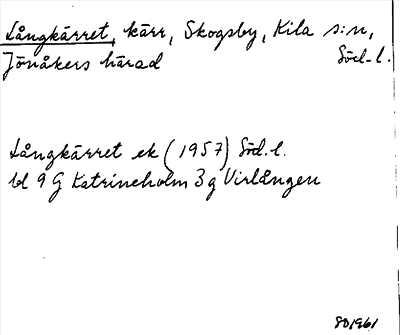 Långkärret, kärr, Skogsby, Kila s:n,
Jönåkers härad Söd.l.
Långkärret ek (1957) Söd.l.
bl 9 G Katrineholm 3 g Virlången
801961